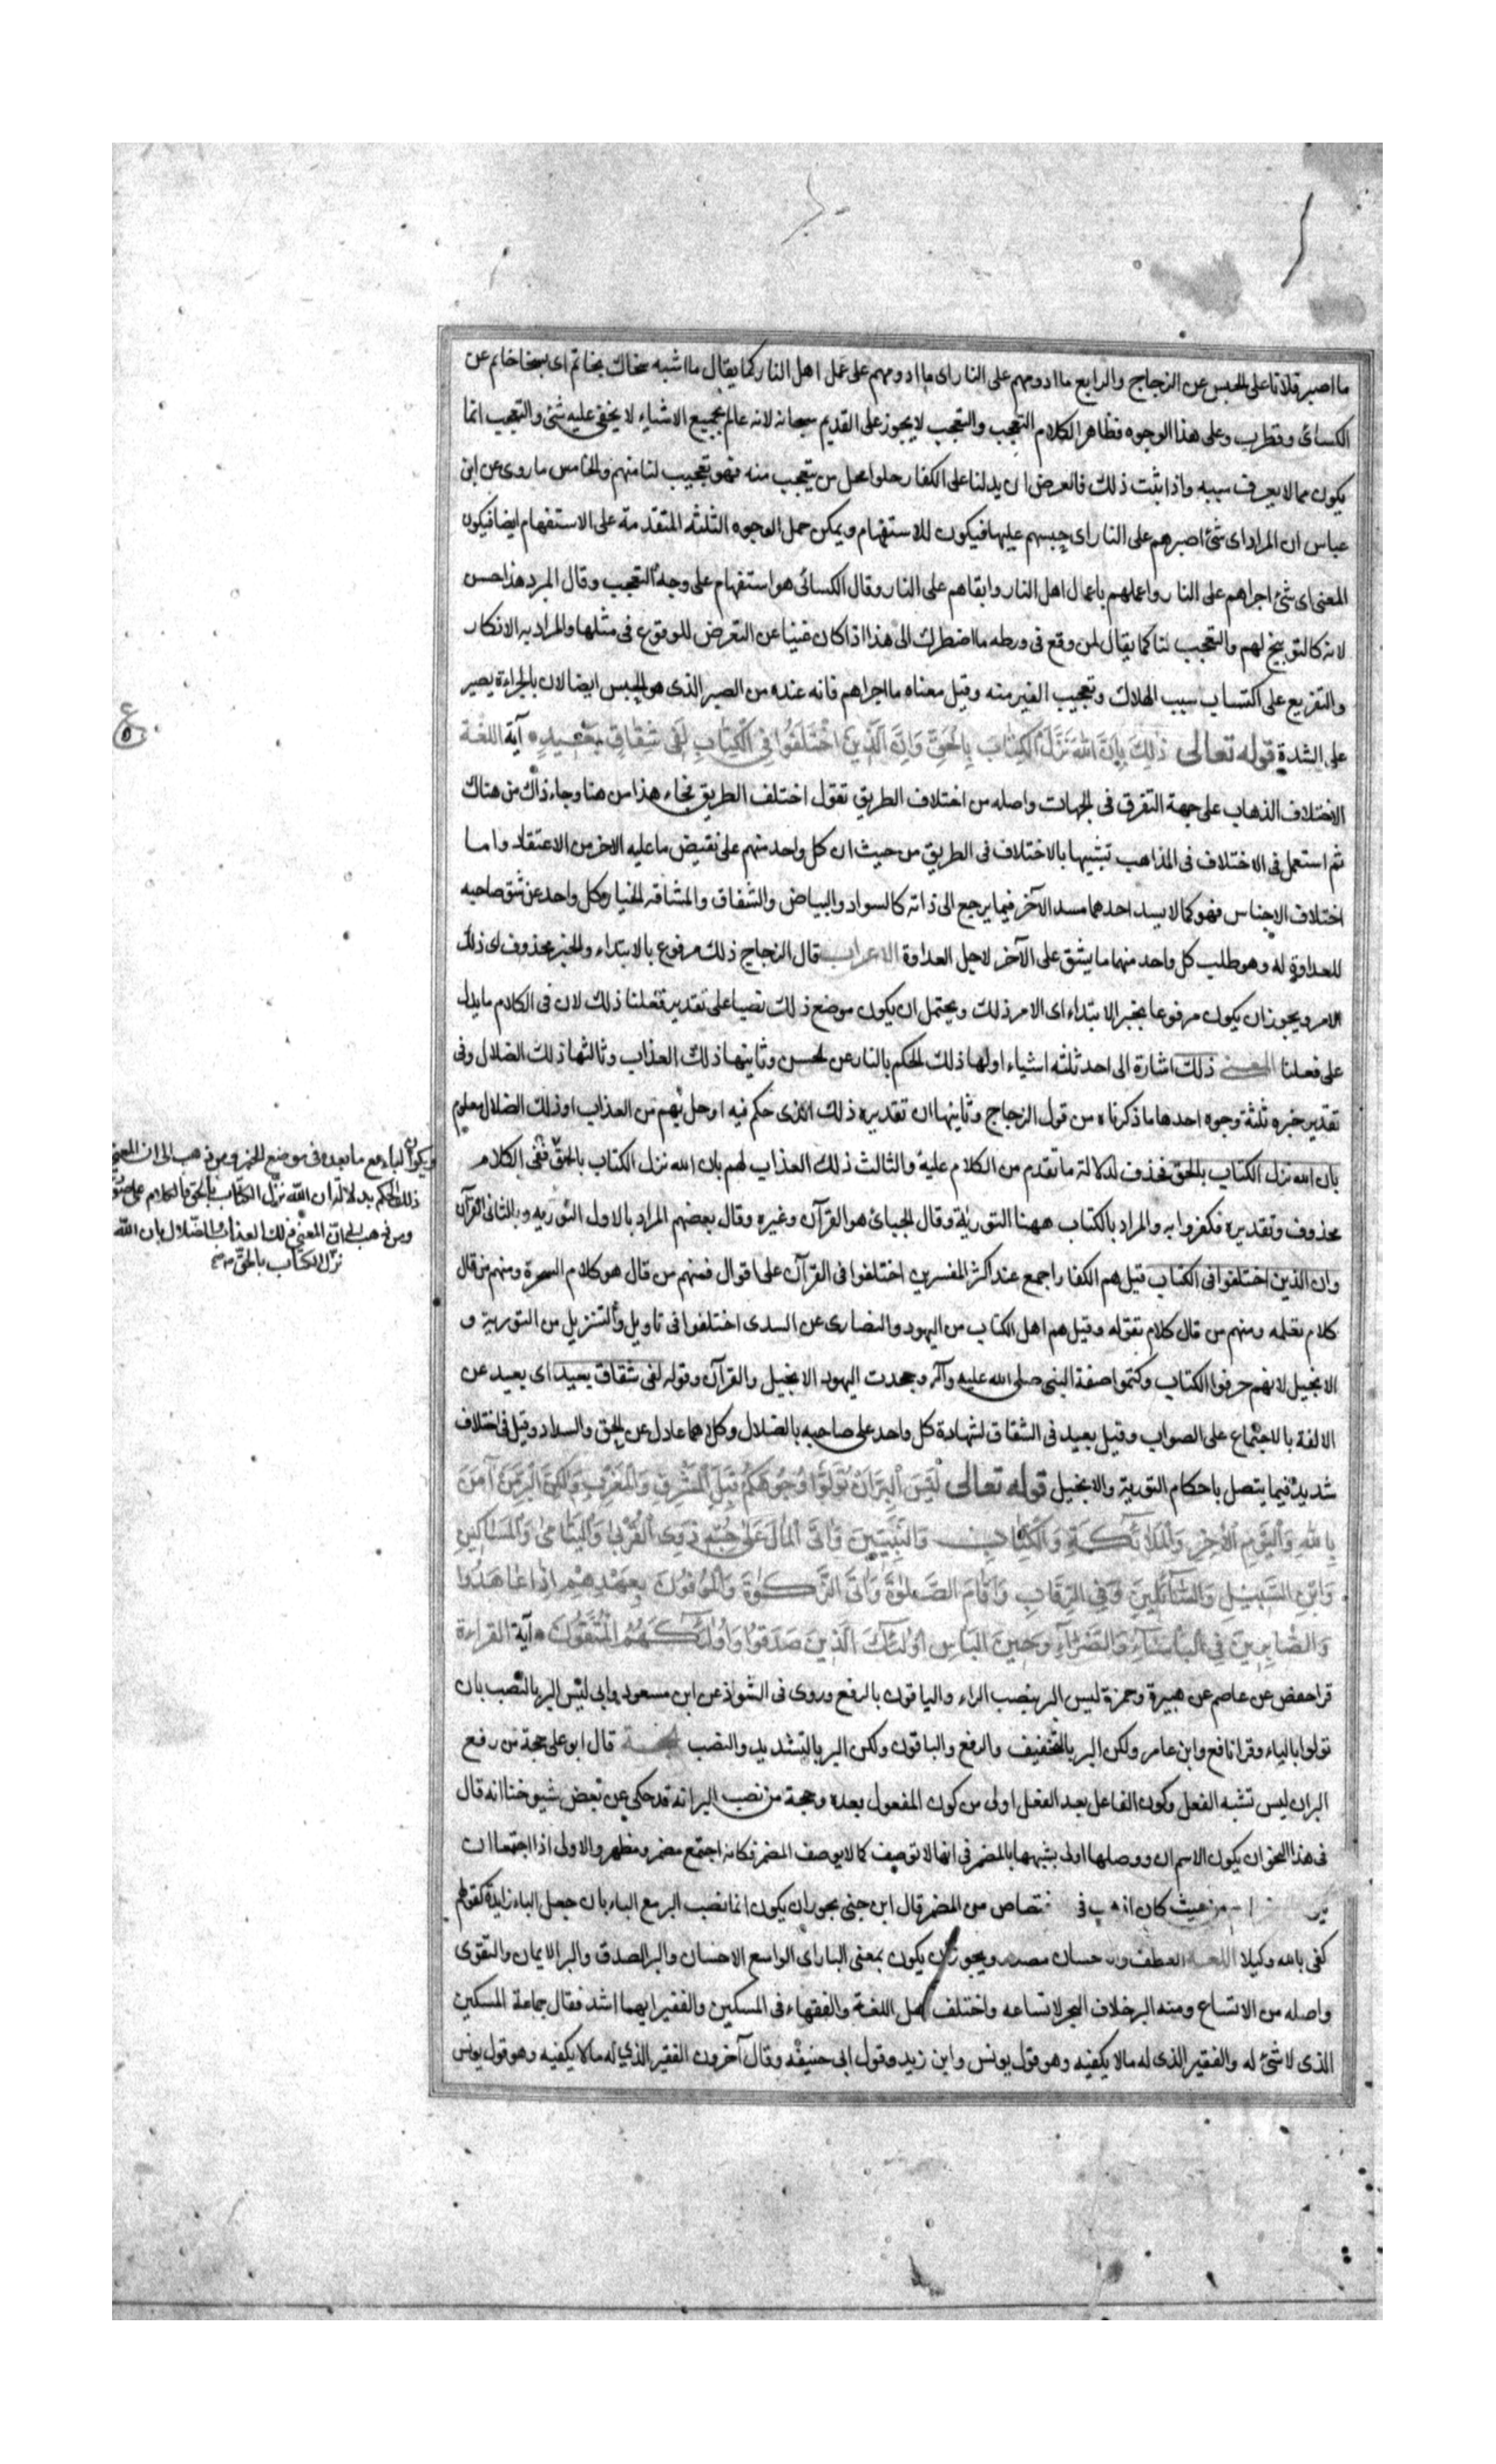 ما اصبر فلانا على الحبس عن الزجاج والرابع ما ادومهم على النار اى ما ادومهم على عمل اهل النار كما يقال ما اشبه سخاك بخاتم اى بسخا خاتم عن
الكسائ وقطرب وعلى هذا الوجوه فظاهر الكلام التعجب والتعجب لا يجوز على القديم سبحانه لانه عالم بجميع الاشياء لا يخفى عليه شئ والتعجب انما
يكون مما لا يعرف سببه واذا ثبت ذلك فالغرض ان يدلنا على الكفار حلوا محل من يتعجب منه فهو تعجيب لنا منهم والخامس ما روى عن ابن
عباس ان المراد اى شئ اصبرهم على النار اى حبسهم عليها فيكون للاستفهام ويمكن حمل الوجوه الثلثه المتقدمة على الاستفهام ايضا فيكون
المعنى اى شئ اجراهم على النار واعملهم باعمال اهل النار وابقاهم على النار وقال الكسائى هو استفهام على وجه التعجب وقال المبرد هذا حسن
لانه كالتوبيخ لهم والتعجب لنا كما يقال لمن وقع فى ورطه ما اضطرك الى هذا اذا كان غنيا عن التعرض للوقوع فى مثلها والمراد به الانكار
والتقريع على اكتساب سبب الهلاك وتعجيب الغير منه وقيل معناه ما اجراهم فانه عنده من الصبر الذى هو الحبس ايضا لان بالجراءة يصير
على الشدة قوله تعالى ذٰلِكَ بِاَنَّ اللهَ نَزَّلَ الْكِتَابَ بِالْحَقِّ وَاِنَّ الَّذِينَ اخْتَلَفُوا فِى الْكِتَابِ لَفِى شِقَاقٍ بَعِيدٍ آية اللغة
الاختلاف الذهاب على جهة التفرق فى الجهات واصله من اختلاف الطريق تقول اختلف الطريق فجاء هذا من هنا وجاء ذاك من هناك
ثم استعمل فى الاختلاف فى المذاهب تشبيها بالاختلاف فى الطريق من حيث ان كل واحد منهم على نقيض ما عليه الاخر من الاعتقاد واما
اختلاف الاجناس فهو كما لا يسد احدهما مسد الآخر فيما يرجع الى ذاته كالسواد والبياض والشقاق والمشاقه انحياز كل واحد عن شق صاحبه
للعداوة له وهو طلب كل واحد منهما ما يشق على الآخر لاجل العداوة الاعراب قال الزجاج ذلك مرفوع بالابتداء والخبر محذوف اى ذلك
الامر ويجوز ان يكون مرفوعا بخبر الابتداء اى الامر ذلك ويحتمل ان يكون موضع ذلك نصبا على تقدير فعلنا ذلك لان فى الكلام ما يدل
على فعلنا المعنى ذلك اشارة الى احد ثلثه اشياء اولها ذلك الحكم بالنار عن الحسن وثانيها ذلك العذاب وثالثها ذلك الضلال وفى
تقدير خبره ثلثة وجوه احدها ما ذكرناه من قول الزجاج وثانيها ان تقديره ذلك الذى حكم فيه او حل بهم من العذاب او ذلك الضلال معلوم
بان الله نزل الكتاب بالحق فحذف لدلالة ما تقدم من الكلام عليه والثالث ذلك العذاب لهم بان الله نزل الكتاب بالحق ففى الكلام
محذوف وتقديره فكفروا به والمراد بالكتاب ههنا التوريٰة وقال الجبائ هو القرآن وغيره وقال بعضهم المراد بالاول التوريه وبالثانى القرآن
وان الذين اختلفوا فى الكتاب قيل هم الكفار اجمع عند اكثر المفسرين اختلفوا فى القرآن على اقوال فمنهم من قال هو كلام السحرة ومنهم من قال
كلام تعلمه ومنهم من قال كلام تقوله وقيل هم اهل الكتاب من اليهود والنصارى عن السدى اختلفوا فى تاويل والتنزيل من التورية و
الانجيل لانهم حرفوا الكتاب وكتموا صفة النبى صلى الله عليه وآله وجحدت اليهود الانجيل والقرآن وقوله لفى شقاق بعيد اى بعيد عن
الالفة بالاجتماع على الصواب وقيل بعيد فى الشقاق لشهادة كل واحد على صاحبه بالضلال وكلاهما عادل عن الحق والسداد وقيل فى اختلاف
شديد فيما يتصل باحكام التورية والانجيل قوله تعالى لَيْسَ الْبِرَّ اَنْ تُوَلُّوا وُجُوهَكُمْ قِبَلَ الْمَشْرِقِ وَالْمَغْرِبِ وَلٰكِنَّ الْبِرَّ مَنْ آمَنَ
بِاللهِ وَالْيَوْمِ الْاٰخِرِ وَالْمَلَائِكَةِ وَالْكِتَابِ وَالنَّبِيِّينَ وَاٰتَى الْمَالَ عَلَى حُبِّهِ ذَوِى الْقُرْبٰى وَالْيَتَامىٰ وَالْمَسَاكِينَ
وَابْنَ السَّبِيلِ وَالسَّآئِلِينَ وَفِى الرِّقَابِ وَاَقَامَ الصَّلٰوةَ وَاٰتَى الزَّكٰوةَ وَالْمُوفُونَ بِعَهْدِهِمْ اِذَا عَاهَدُوا
وَالصَّابِرِينَ فِى الْبَأْسَآءِ وَالضَّرَّآءِ وَحِينَ الْبَأْسِ اُولٰئِكَ الَّذِينَ صَدَقُوا وَاُولٰئِكَ هُمُ الْمُتَّقُونَ آية القراءة
قرا حفص عن عاصم عن هبيرة وحمزة ليس البر بنصب الراء والباقون بالرفع وروى فى الشواذ عن ابن مسعود وابى ليس البر بالنصب بان
تولوا بالباء وقرا نافع وابن عامر ولكن البر بالتخفيف والرفع والباقون ولكن البر بالتشديد والنصب قال ابو على حجة من رفع
البر ان ليس تشبه الفعل وكون الفاعل بعد الفعل اولى من كون المفعول بعده وحجة من نصب البر انه قد حكى عن بعض شيوخنا انه قال
فى هذا النحو ان يكون الاسم ان ووصلها اولى بشبهها بالمضمر فى انها لا توصف كما لا يوصف المضمر فكانه اجتمع مضمر ومظهر والاولى اذا اجتمعا ان
من حيث كان اذهب فى من المضمر قال ابن جنى يجوز ان يكون انما نصب البر مع الباء بان جعل الباء زايدة كقولهم
كفى بالله وكيلا اللغة العطف ويجوز ان يكون بمعنى البار اى الواسع الاحسان والبر الصدق والبر الايمان والتقوى
واصله من الاتساع ومنه البر خلاف البحر لاتساعه واختلف اهل اللغة والفقهاء فى المسكين والفقير ايهما اشد فقال جماعة المسكين
الذى لا شئ له والفقير الذى له ما لا يكفيه وهو قول يونس وابن زيد وقول ابى حنيفه وقال آخرون الفقير الذي له ما لا يكفيه وهو قول يونس
ويكون الباء مع ما بعده فى موضع الخبر ومن ذهب الى ان المعنى
ذلك الحكم بدلالة ان الله نزل الكتاب بالحق فالكلام على
ومن ذهب الى ان المعنى ذلك العذاب او الضلال بان الله
نزل الكتاب بالحق